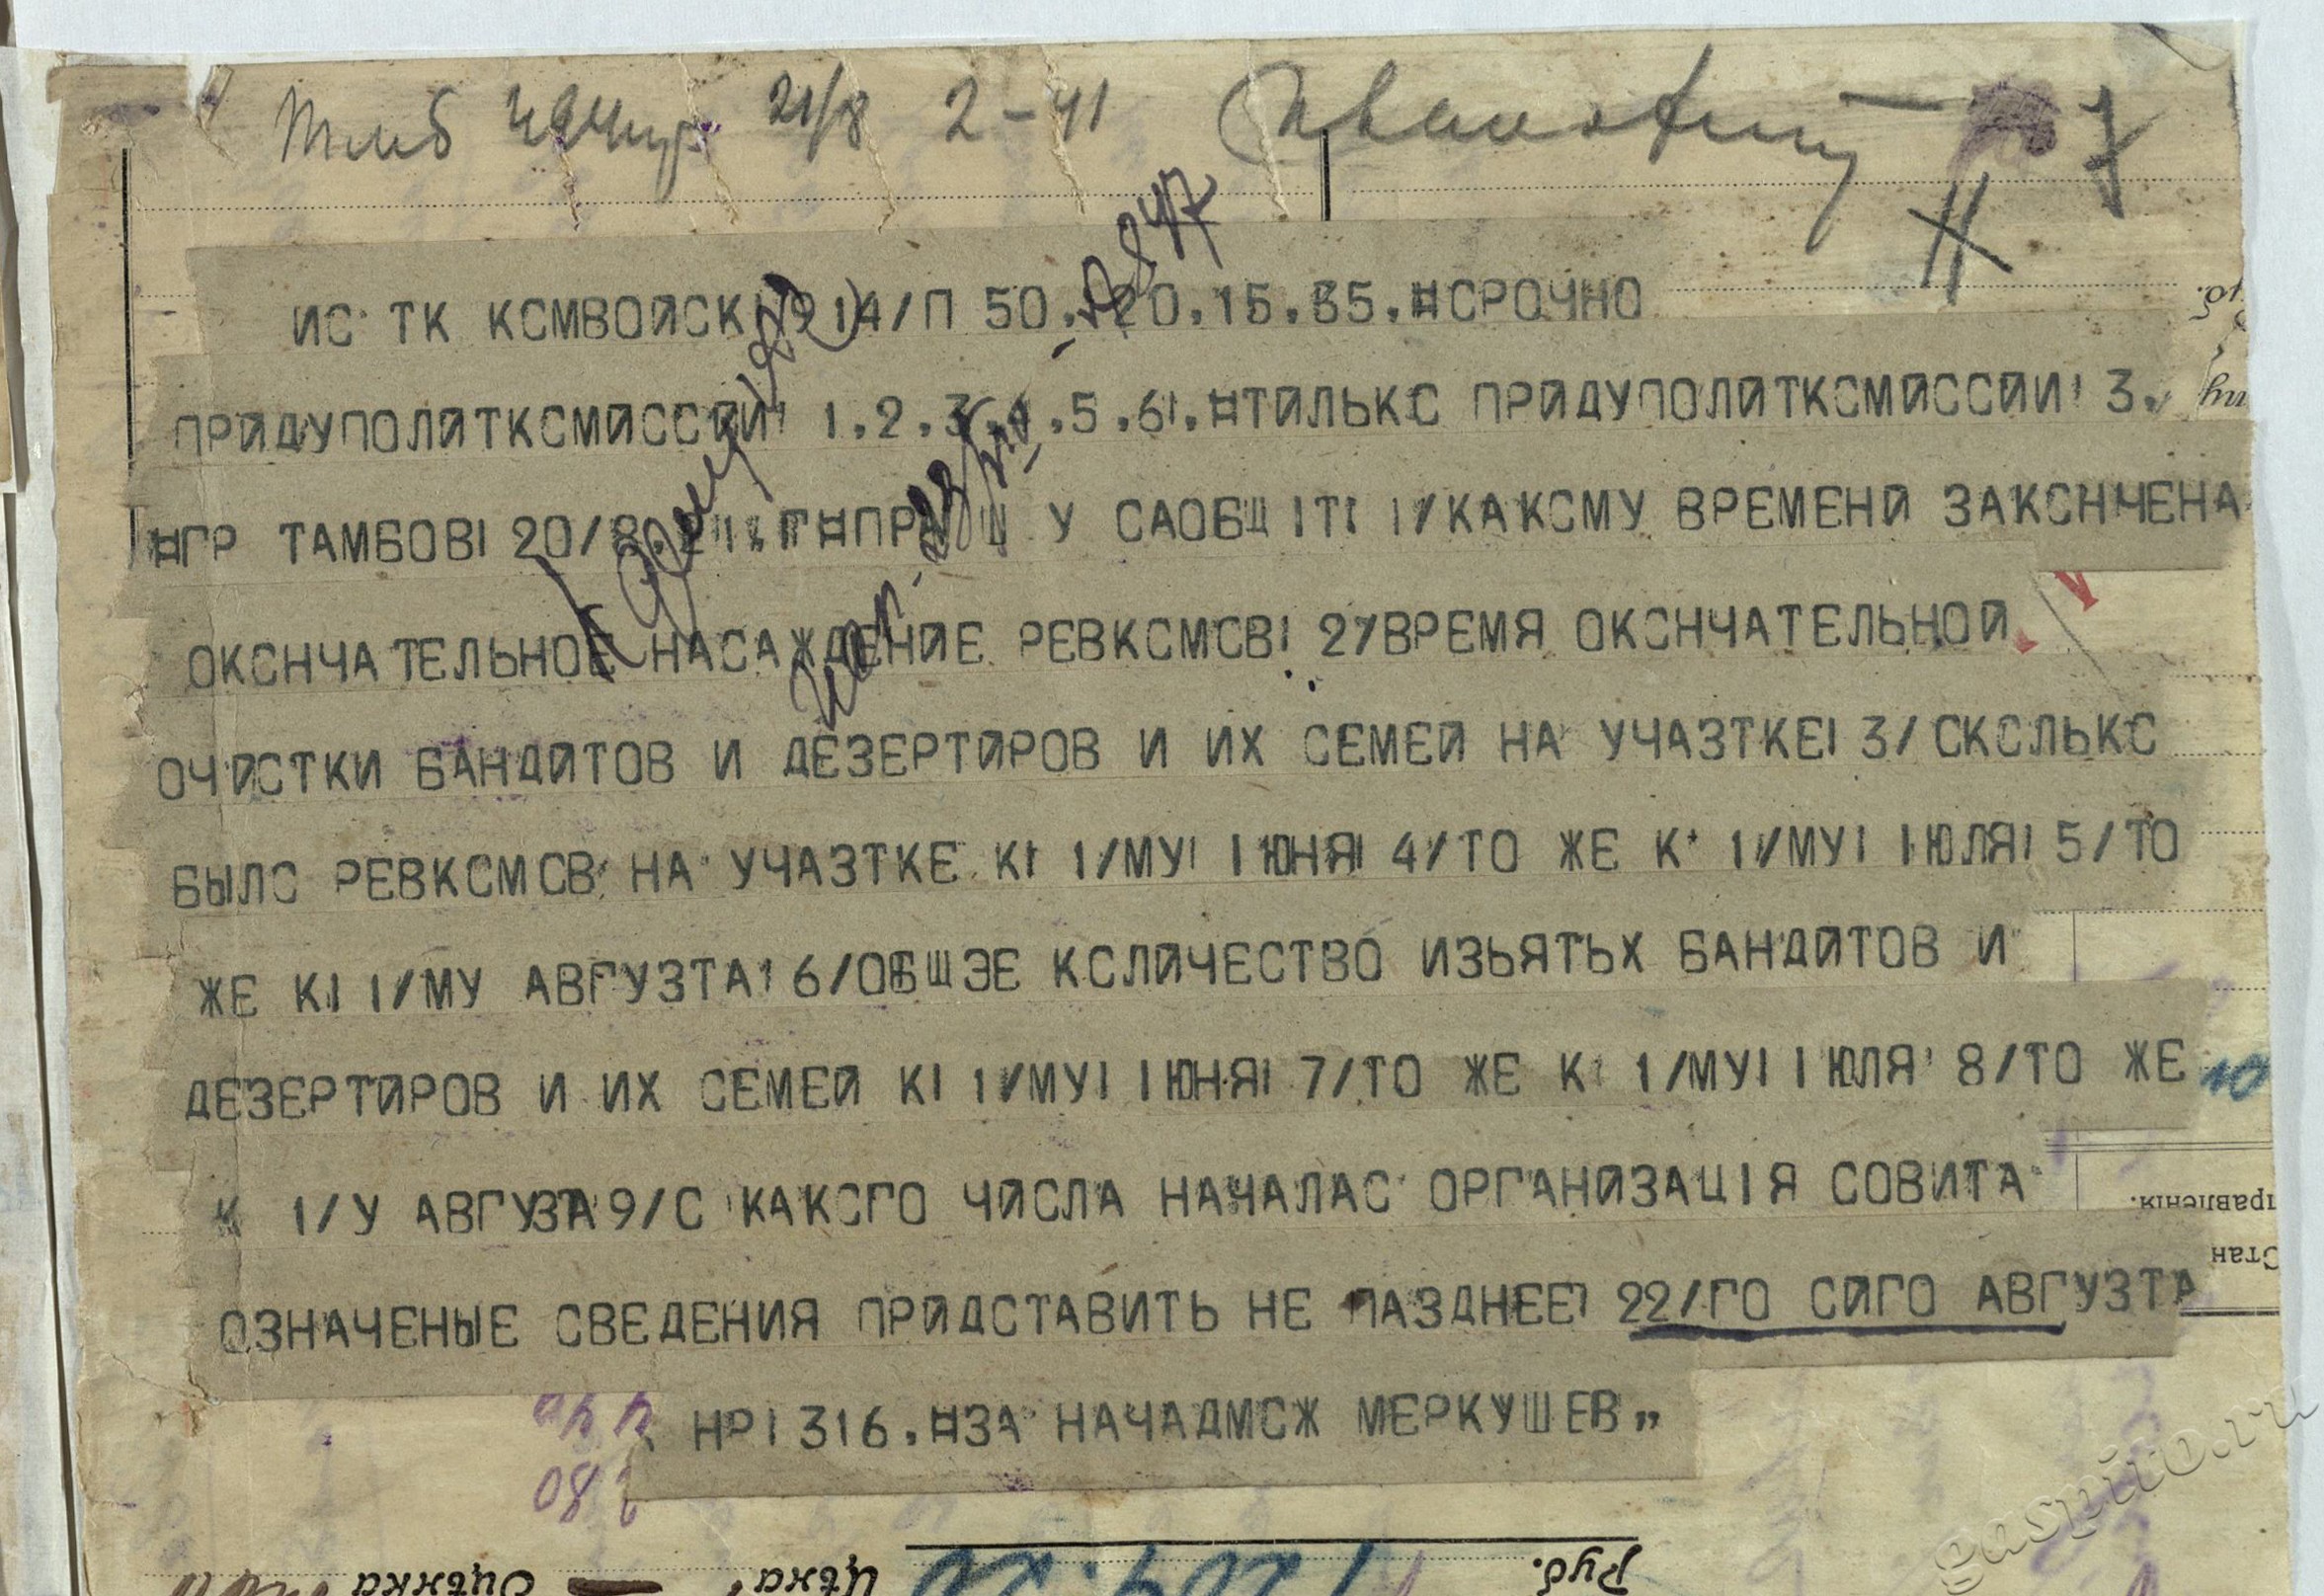 21/8 2-41
7
ИС ТК КСМВОЙСК 14/П 50. 20.15.35.¤СРОЧНО
ПРИДУПОЛИТКСМИССИИ 1.2.3.4.5.6.¤ТИЛЬКС ПРИДУПОЛИТКСМИССИИ 3.
¤ГР ТАМБОВ 20/8. У САОБЩІТІ 1/КАКСМУ ВРЕМЕНИ ЗАКСНЧЕНА
ОКСНЧАТЕЛЬНОЕ НАСАЖДЕНИЕ РЕВКСМСВ 2/ВРЕМЯ ОКСНЧАТЕЛЬНОЙ
ОЧИСТКИ БАНДИТОВ И ДЕЗЕРТИРОВ И ИХ СЕМЕЙ НА УЧАЗТКЕ 3/СКСЛЬКС
БЫЛС РЕВКСМСВ НА УЧАЗТКЕ К 1/МУ ІЮНЯ 4/ТО ЖЕ К 1/МУ ІЮЛЯ 5/ТО
ЖЕ К 1/МУ АВГУЗТА 6/ОБЩЭЕ КСЛИЧЕСТВО ИЗЬЯТЬХ БАНДИТОВ И
ДЕЗЕРТИРОВ И ИХ СЕМЕЙ К 1/МУ ІЮНЯ 7/ТО ЖЕ К 1/МУ ІЮЛЯ 8/ТО ЖЕ
К 1/У АВГУЗТА 9/С КАКСГО ЧИСЛА НАЧАЛАС ОРГАНИЗАЦІЯ СОВИТА
ОЗНАЧЕНЫЕ СВЕДЕНИЯ ПРИДСТАВИТЬ НЕ ПАЗДНЕЕ 22/ГО СИГО АВГУЗТА
НР 316.¤ЗА НАЧАДМСЖ МЕРКУШЕВ„
равленія.
Стан
Руб.
Цѣна
Оцѣнка
gaspito.ru